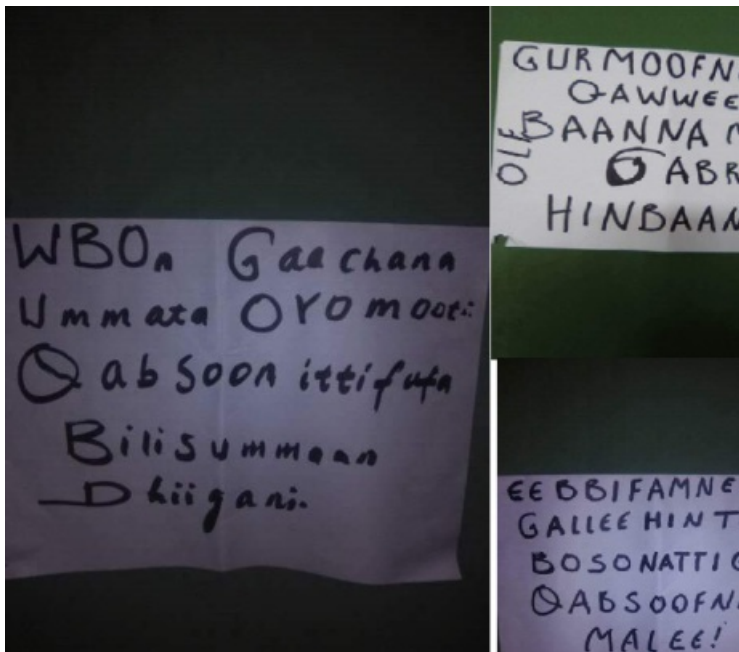 WBOn Gaachana
Ummata Oromooti
Qabsoon ittifufa
Bilisummaan
Dhiigani.
GURMOOFN
QAWWEE
BAANNA
OLF
GABR
HINBAAN
EEBBIFAMNE
GALLEE HINT
BOSONATTI
QABSOOFN
MALEE!